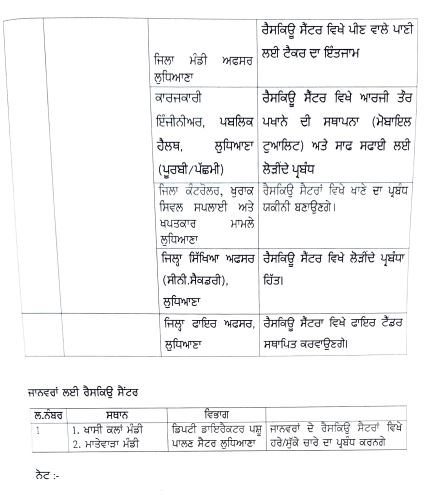 ਰੈਸਕਿਊ ਸੈਂਟਰ ਵਿਖੇ ਪੀਣ ਵਾਲੇ ਪਾਣੀ
ਜਿਲਾ ਮੰਡੀ ਅਫਸਰ ਲਈ ਟੈਕਰ ਦਾ ਇੰਤਜਾਮ
ਲੁਧਿਆਣਾ
ਕਾਰਜਕਾਰੀ ਰੈਸਕਿਊ ਸੈਂਟਰ ਵਿਖੇ ਆਰਜੀ ਤੌਰ
ਇੰਜੀਨੀਅਰ, ਪਬਲਿਕ ਪਖਾਨੇ ਦੀ ਸਥਾਪਨਾ (ਮੋਬਾਇਲ
ਹੈਲਥ, ਲੁਧਿਆਣਾ ਟੁਆਲਿਟ) ਅਤੇ ਸਾਫ ਸਫਾਈ ਲਈ
(ਪੂਰਬੀ/ਪੱਛਮੀ) ਲੋੜੀਂਦੇ ਪ੍ਰਬੰਧ
ਜਿਲਾ ਕੰਟਰੋਲਰ, ਖੁਰਾਕ ਰੈਸਕਿਊ ਸੈਂਟਰਾਂ ਵਿਖੇ ਖਾਣੇ ਦਾ ਪ੍ਰਬੰਧ
ਸਿਵਲ ਸਪਲਾਈ ਅਤੇ ਯਕੀਨੀ ਬਣਾਉਣਗੇ।
ਖਪਤਕਾਰ ਮਾਮਲੇ
ਲੁਧਿਆਣਾ
ਜਿਲ੍ਹਾ ਸਿੱਖਿਆ ਅਫਸਰ ਰੈਸਕਿਊ ਸੈਂਟਰ ਵਿਖੇ ਲੋੜੀਂਦੇ ਪ੍ਰਬੰਧਾ
(ਸੀਨੀ.ਸੈਕਡਰੀ), ਹਿੱਤ।
ਲੁਧਿਆਣਾ
ਜਿਲ੍ਹਾ ਫਾਇਰ ਅਫਸਰ, ਰੈਸਕਿਊ ਸੈਂਟਰਾ ਵਿਖੇ ਫਾਇਰ ਟੈਂਡਰ
ਲੁਧਿਆਣਾ ਸਥਾਪਿਤ ਕਰਵਾਉਣਗੇ।
ਜਾਨਵਰਾਂ ਲਈ ਰੈਸਕਿਊ ਸੈਂਟਰ
ਲ.ਨੰਬਰ ਸਥਾਨ ਵਿਭਾਗ
1 1. ਖਾਸੀ ਕਲਾਂ ਮੰਡੀ ਡਿਪਟੀ ਡਾਇਰੈਕਟਰ ਪਸ਼ੂ ਜਾਨਵਰਾਂ ਦੇ ਰੈਸਕਿਊ ਸੈਂਟਰਾਂ ਵਿਖੇ
2. ਮਾਤੇਵਾੜਾ ਮੰਡੀ ਪਾਲਣ ਸੈਟਰ ਲੁਧਿਆਣਾ ਹਰੇ/ਸੁੱਕੇ ਚਾਰੇ ਦਾ ਪ੍ਰਬੰਧ ਕਰਨਗੇ
ਨੋਟ :-